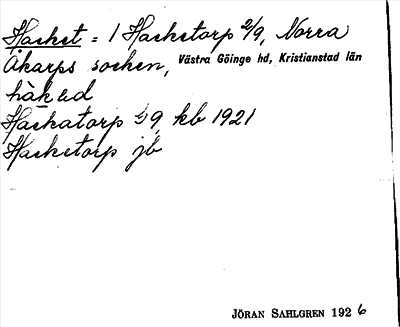 Hacket = 1 Hacketorp 2/9, Norra
Åkarps socken, Västra Göinge hd, Kristianstad län
Hackatorp 2/9 kb 1921
Hacketorp jb
JÖRAN SAHLGREN 1926